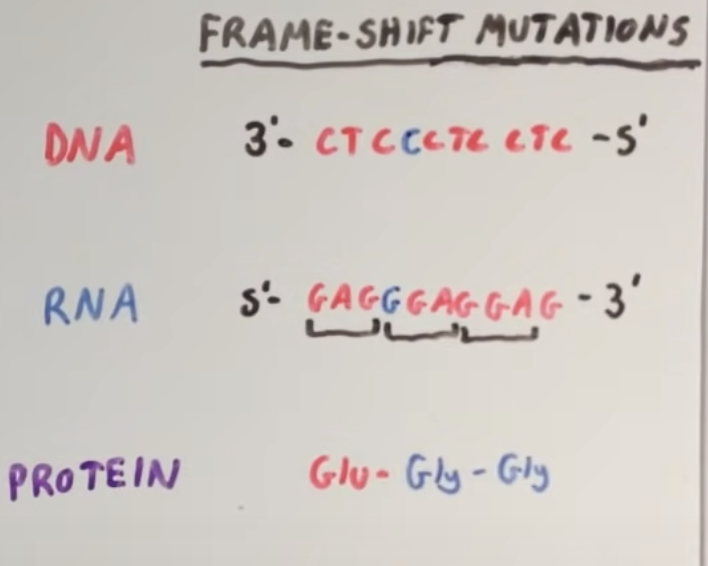 FRAME-SHIFT MUTATIONS
DNA 3'- CTCCCTC CTC -5'
RNA 5'- GAGGGAGGAG -3'
PROTEIN Glu- Gly - Gly